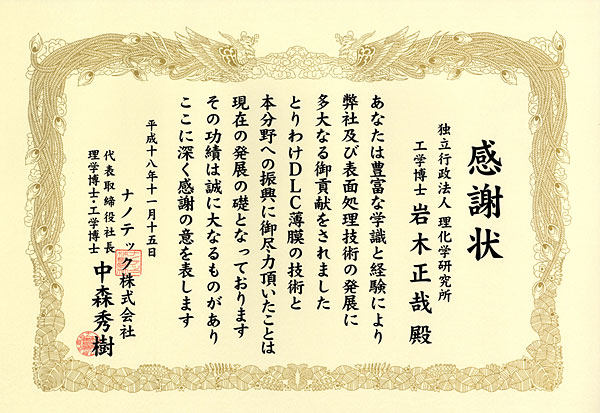 感謝状
独立行政法人 理化学研究所
工学博士 岩木正哉 殿
あなたは豊富な学識と経験により
弊社及び表面処理技術の発展に
多大なる御貢献をされました
とりわけDLC薄膜の技術と
本分野への振興に御尽力頂いたことは
現在の発展の礎となっております
その功績は誠に大なるものがあり
ここに深く感謝の意を表します
平成十八年十一月十五日
ナノテック株式会社
代表取締役社長
理学博士・工学博士 中森秀樹